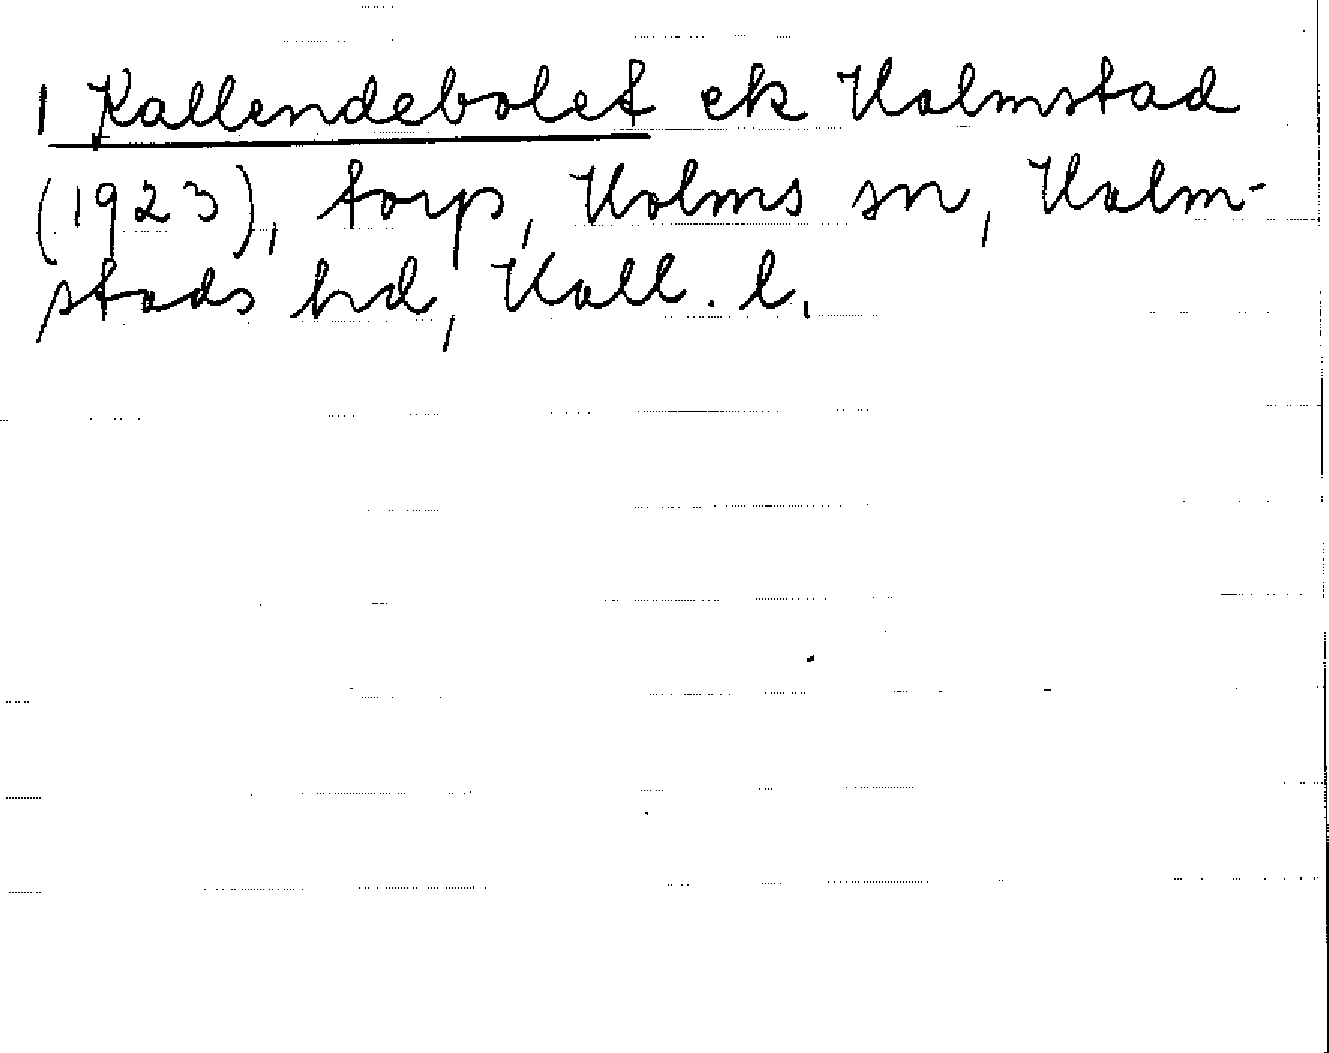 1 Kallendebolet ek Halmstad
(1923), torp, Holms sn, Halm-
stads hd, Hall. l.